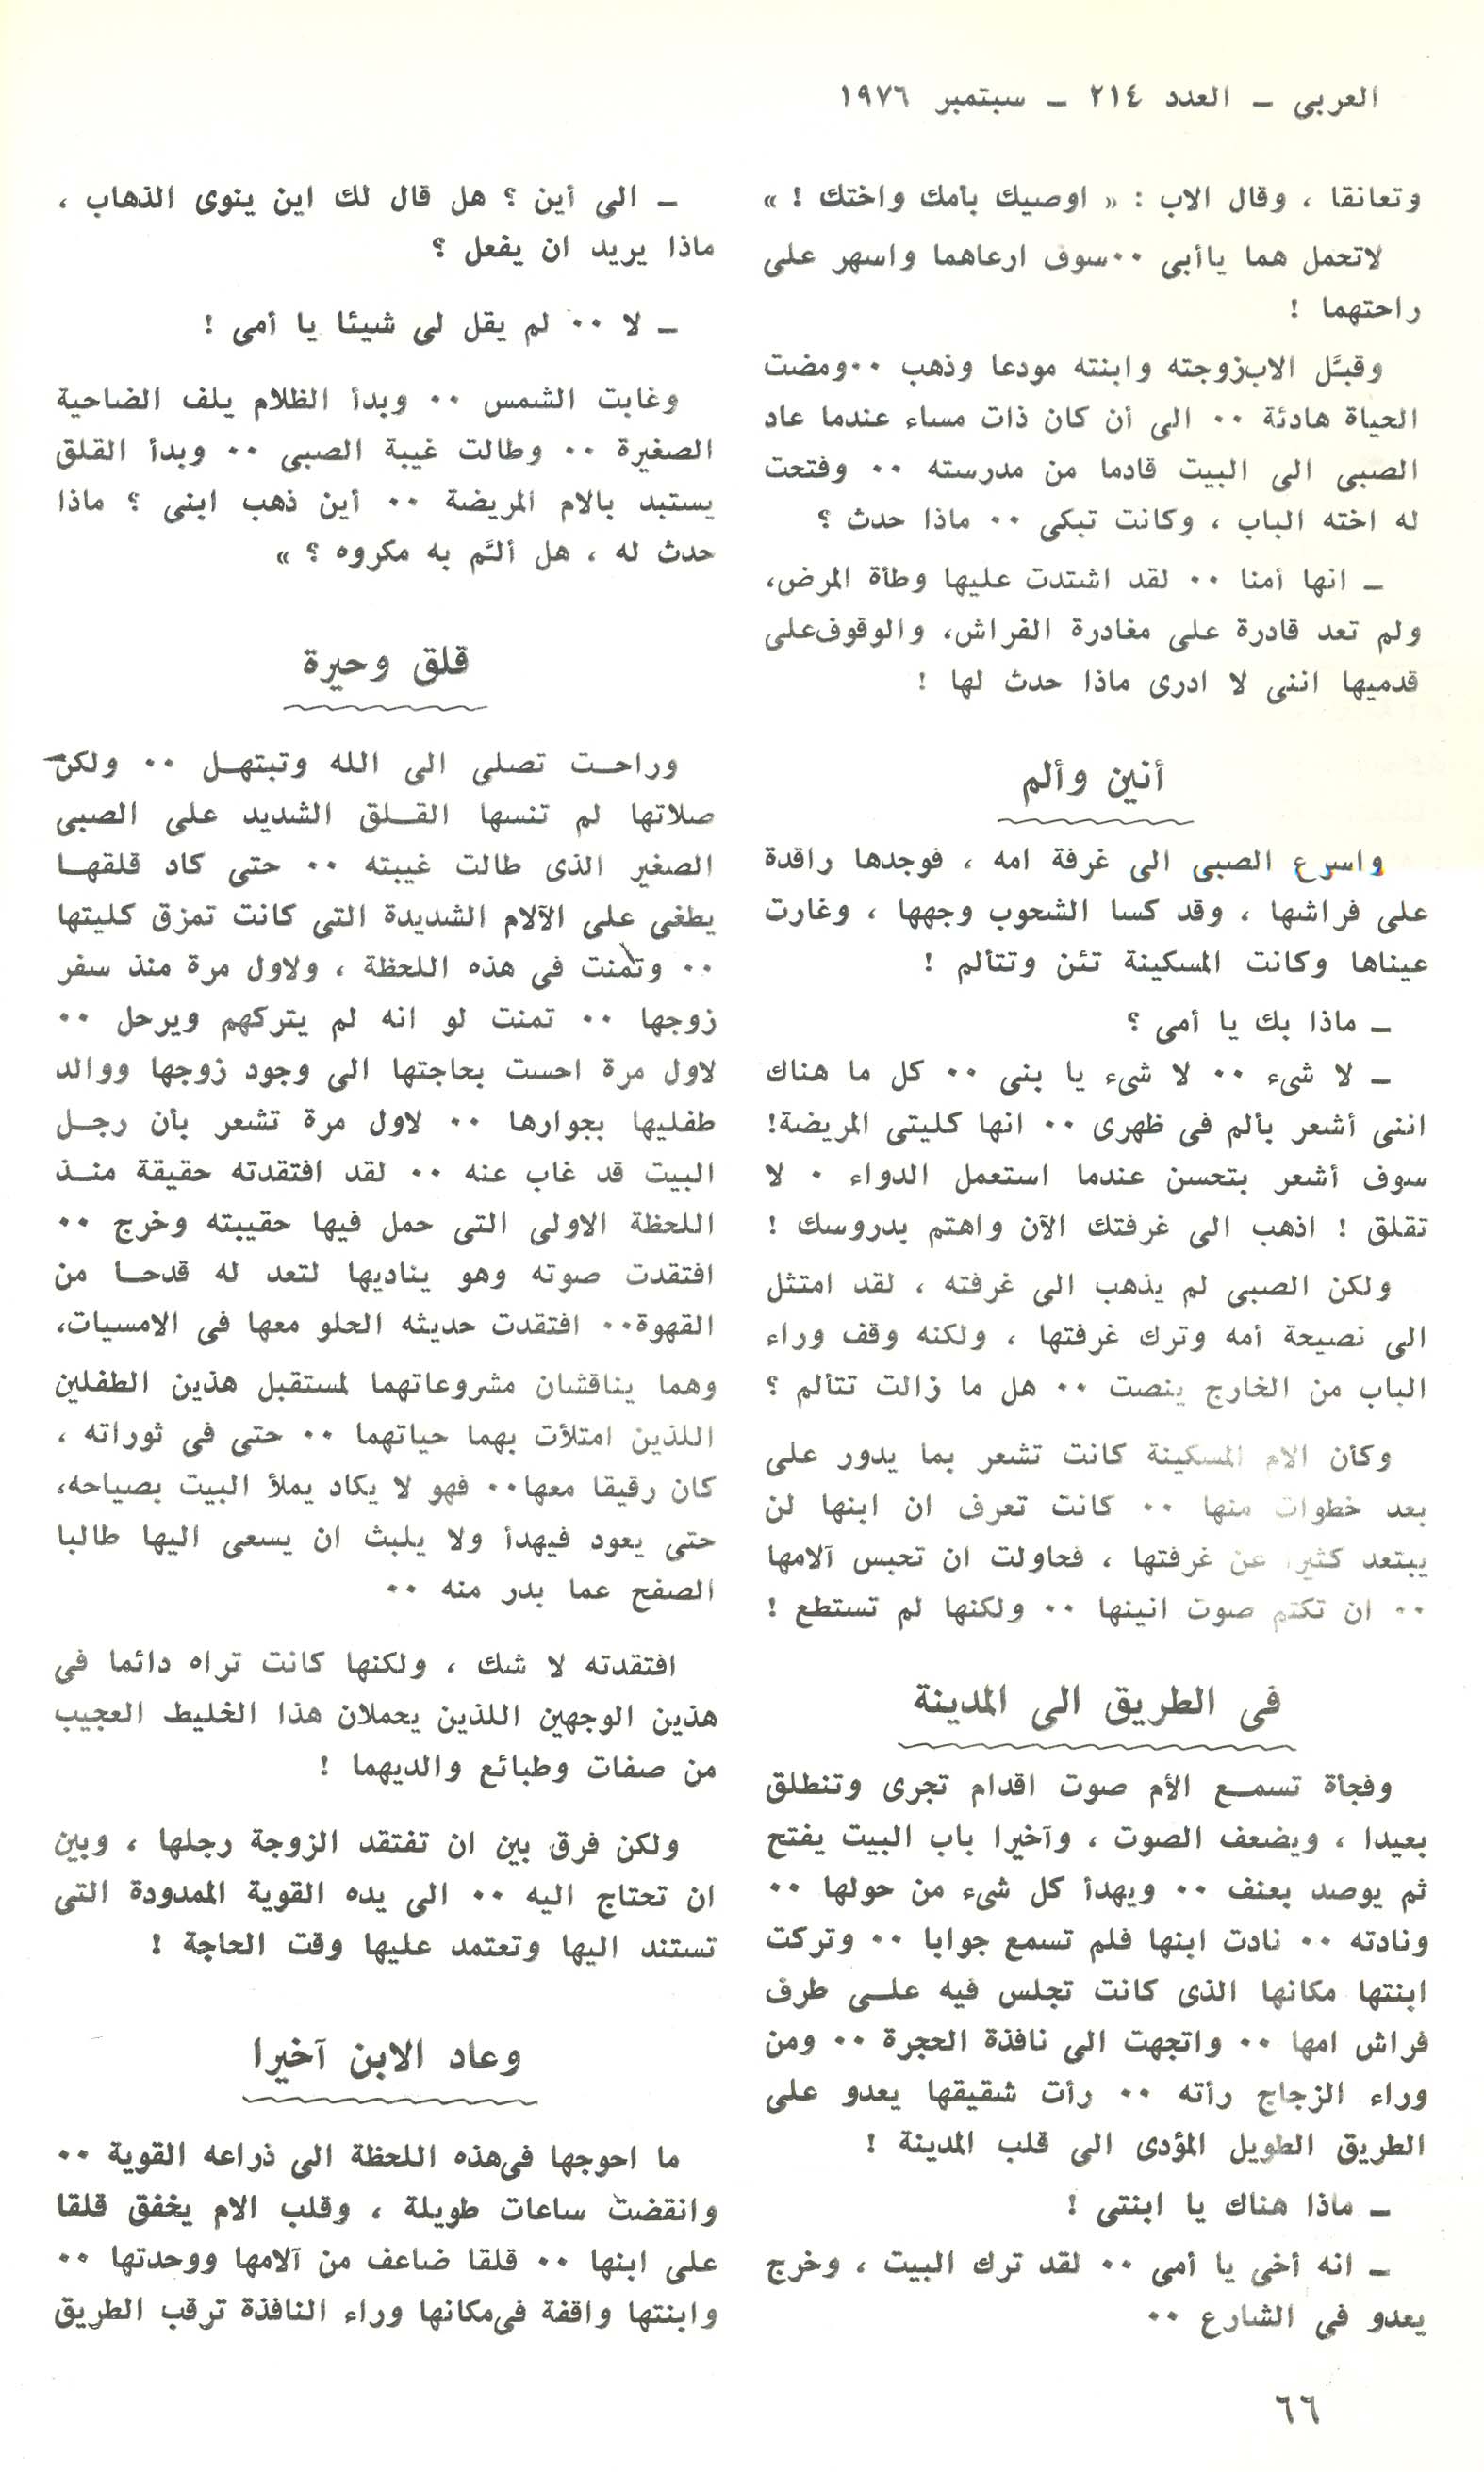 العربى – العدد ٢١٤ – سبتمبر ١٩٧٦
وتعانقا ، وقال الاب : « اوصيك بأمك واختك ! »
لاتحمل هما ياأبى ٠٠سوف ارعاهما واسهر على
راحتهما !
وقبَّل الاب زوجته وابنته مودعا وذهب ٠٠ومضت
الحياة هادئة ٠٠ الى أن كان ذات مساء عندما عاد
الصبى الى البيت قادما من مدرسته ٠٠ وفتحت
له اخته الباب ، وكانت تبكى ٠٠ ماذا حدث ؟
– انها أمنا ٠٠ لقد اشتدت عليها وطأة المرض،
ولم تعد قادرة على مغادرة الفراش، والوقوف على
قدميها اننى لا ادرى ماذا حدث لها !
أنين وألم
واسرع الصبى الى غرفة امه ، فوجدها راقدة
على فراشها ، وقد كسا الشحوب وجهها ، وغارت
عيناها وكانت المسكينة تئن وتتألم !
– ماذا بك يا أمى ؟
– لا شىء ٠٠ لا شىء يا بنى ٠٠ كل ما هناك
اننى أشعر بألم فى ظهرى ٠٠ انها كليتى المريضة!
سوف أشعر بتحسن عندما استعمل الدواء ٠ لا
تقلق ! اذهب الى غرفتك الآن واهتم بدروسك !
ولكن الصبى لم يذهب الى غرفته ، لقد امتثل
الى نصيحة أمه وترك غرفتها ، ولكنه وقف وراء
الباب من الخارج ينصت ٠٠ هل ما زالت تتألم ؟
وكأن الام المسكينة كانت تشعر بما يدور على
بعد خطوات منها ٠٠ كانت تعرف ان ابنها لن
يبتعد كثيرا عن غرفتها ، فحاولت ان تحبس آلامها
٠٠ ان تكتم صوت انينها ٠٠ ولكنها لم تستطع !
فى الطريق الى المدينة
وفجأة تسمع الأم صوت اقدام تجرى وتنطلق
بعيدا ، ويضعف الصوت ، وآخيرا باب البيت يفتح
ثم يوصد بعنف ٠٠ ويهدأ كل شىء من حولها ٠٠
ونادته ٠٠ نادت ابنها فلم تسمع جوابا ٠٠ وتركت
ابنتها مكانها الذى كانت تجلس فيه على طرف
فراش امها ٠٠ واتجهت الى نافذة الحجرة ٠٠ ومن
وراء الزجاج رأته ٠٠ رأت شقيقها يعدو على
الطريق الطويل المؤدى الى قلب المدينة !
– ماذا هناك يا ابنتى !
– انه أخى يا أمى ٠٠ لقد ترك البيت ، وخرج
يعدو فى الشارع ٠٠
– الى أين ؟ هل قال لك اين ينوى الذهاب ،
ماذا يريد ان يفعل ؟
– لا ٠٠ لم يقل لى شيئا يا أمى !
وغابت الشمس ٠٠ وبدأ الظلام يلف الضاحية
الصغيرة ٠٠ وطالت غيبة الصبى ٠٠ وبدأ القلق
يستبد بالام المريضة ٠٠ أين ذهب ابنى ؟ ماذا
حدث له ، هل ألَّم به مكروه ؟ »
قلق وحيرة
وراحت تصلى الى الله وتبتهل ٠٠ ولكن
صلاتها لم تنسها القلق الشديد على الصبى
الصغير الذى طالت غيبته ٠٠ حتى كاد قلقها
يطغى على الآلام الشديدة التى كانت تمزق كليتها
٠٠ وتمنت فى هذه اللحظة ، ولاول مرة منذ سفر
زوجها ٠٠ تمنت لو انه لم يتركهم ويرحل ٠٠
لاول مرة احست بحاجتها الى وجود زوجها ووالد
طفليها بجوارها ٠٠ لاول مرة تشعر بأن رجل
البيت قد غاب عنه ٠٠ لقد افتقدته حقيقة منذ
اللحظة الاولى التى حمل فيها حقيبته وخرج ٠٠
افتقدت صوته وهو يناديها لتعد له قدحا من
القهوة٠٠ افتقدت حديثه الحلو معها فى الامسيات،
وهما يناقشان مشروعاتهما لمستقبل هذين الطفلين
اللذين امتلأت بهما حياتهما ٠٠ حتى فى ثوراته ،
كان رقيقا معها٠٠ فهو لا يكاد يملأ البيت بصياحه،
حتى يعود فيهدأ ولا يلبث ان يسعى اليها طالبا
الصفح عما بدر منه ٠٠
افتقدته لا شك ، ولكنها كانت تراه دائما فى
هذين الوجهين اللذين يحملان هذا الخليط العجيب
من صفات وطبائع والديهما !
ولكن فرق بين ان تفتقد الزوجة رجلها ، وبين
ان تحتاج اليه ٠٠ الى يده القوية الممدودة التى
تستند اليها وتعتمد عليها وقت الحاجة !
وعاد الابن آخيرا
ما احوجها فى هذه اللحظة الى ذراعه القوية ٠٠
وانقضت ساعات طويلة ، وقلب الام يخفق قلقا
على ابنها ٠٠ قلقا ضاعف من آلامها ووحدتها ٠٠
وابنتها واقفة فى مكانها وراء النافذة ترقب الطريق
٦٦